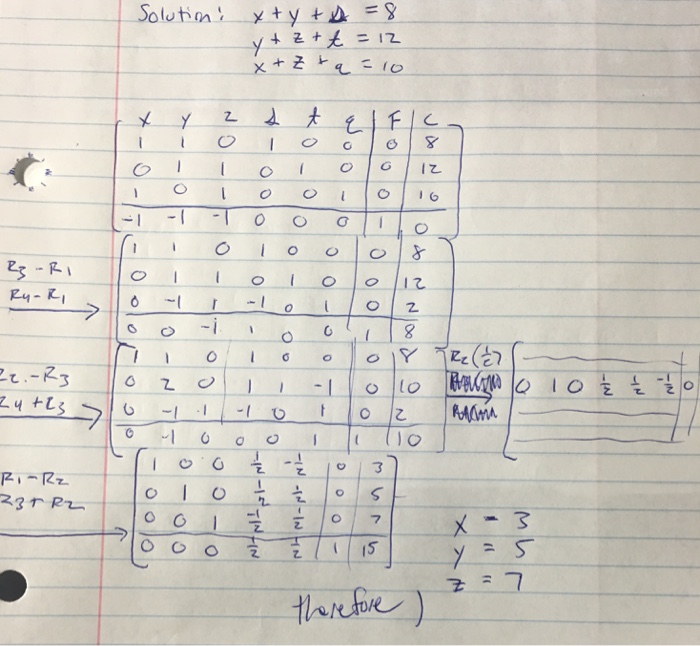 Solution: x + y + s = 8
y + z + t = 12
x + z + q = 10
x y z s t q F C
1 1 0 1 0 0 0 8
0 1 1 0 1 0 0 12
1 0 1 0 0 1 0 10
-1 -1 -1 0 0 0 1 0
R3 - R1
R4 - R1
1 1 0 1 0 0 0 8
0 1 1 0 1 0 0 12
0 -1 1 -1 0 1 0 2
0 0 -1 1 0 0 1 8
R2 - R3
R4 + R3
1 1 0 1 0 0 0 8
0 2 0 1 1 -1 0 10
0 -1 1 -1 0 1 0 2
0 -1 0 0 0 1 1 10
R2 (1/2)
0 1 0 1/2 1/2 -1/2 0
R1 - R2
R3 + R2
1 0 0 1/2 -1/2 0 3
0 1 0 1/2 1/2 0 5
0 0 1 -1/2 1/2 0 7
0 0 0 1/2 1/2 1 15
x = 3
y = 5
z = 7
therefore )